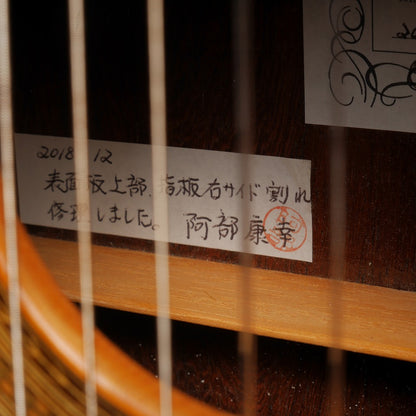 2018 12
表面板上部、指板右サイド割れ
修理しました。 阿部康幸